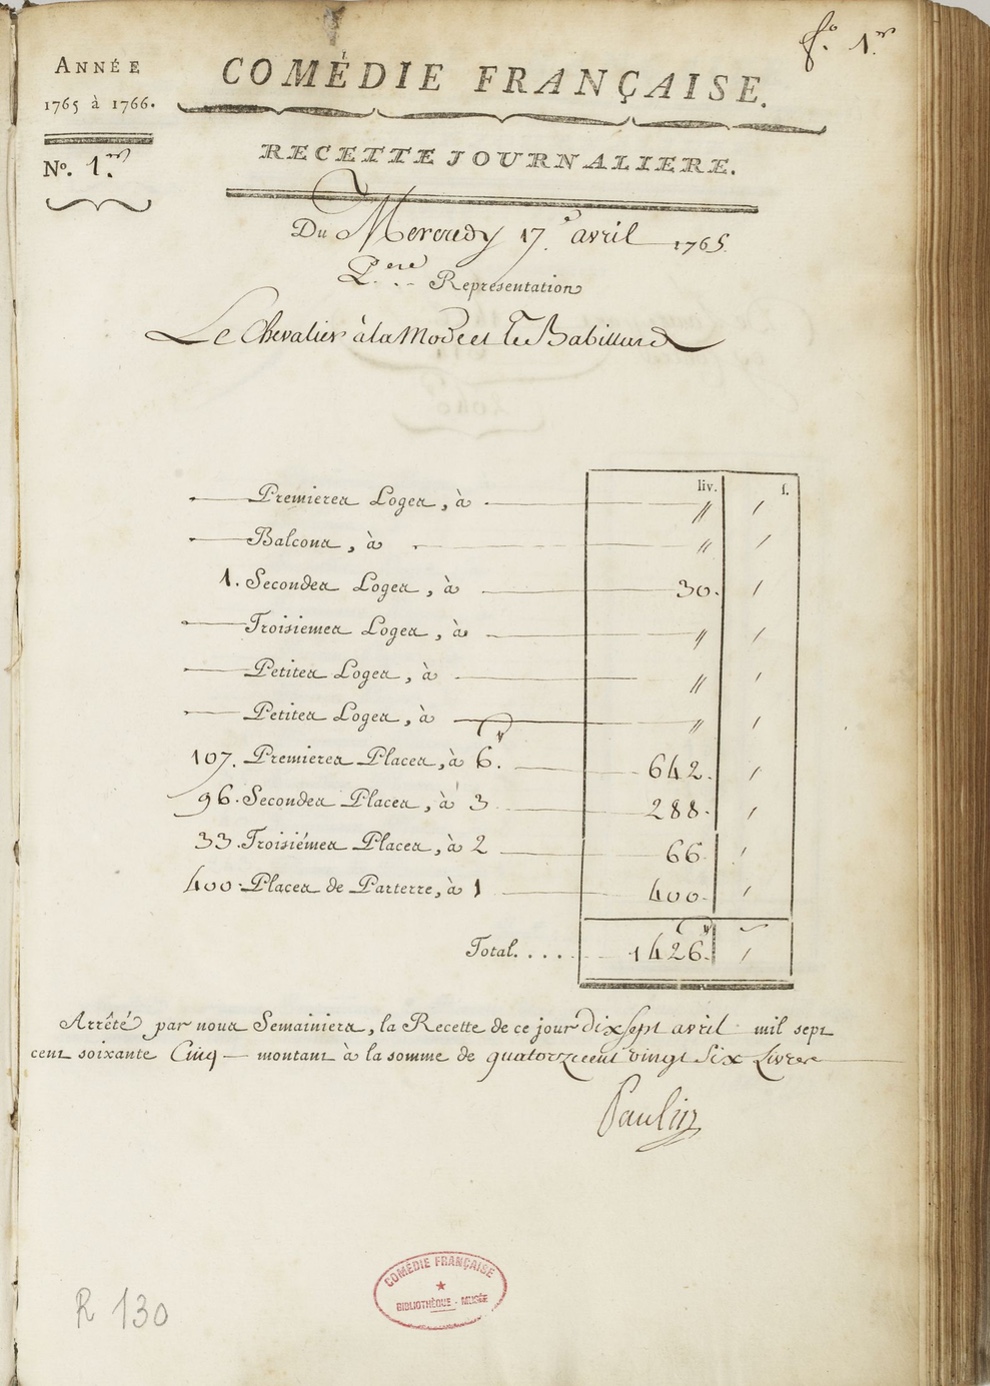 fo. 1.er
ANNÉE
1765 à 1766.
No. 1.er
COMÉDIE FRANÇAISE.
RECETTE JOURNALIERE.
Du Mercredy 17. avril 1765
Representation
Le Chevalier à la Mode et le Babillard
liv. s.
Premieres Loges, à // /
Balcons, à // /
1. Secondes Loges, à 30. /
Troisiemes Loges, à // /
Petites Loges, à // /
Petites Loges, à // /
107. Premieres Places, à 6. 642. /
96. Secondes Places, à 3 288. /
33. Troisiémes Places, à 2 66 /
400. Places de Parterre, à 1 400. /
Total. . . . . 1426. /
Arrêté par nous Semainiers, la Recette de ce jour dix sept avril mil sept
cent soixante Cinq — montant à la somme de quatorze cent vingt Six Livres
Paulin
COMÉDIE FRANÇAISE
BIBLIOTHÈQUE - MUSÉE
R 130